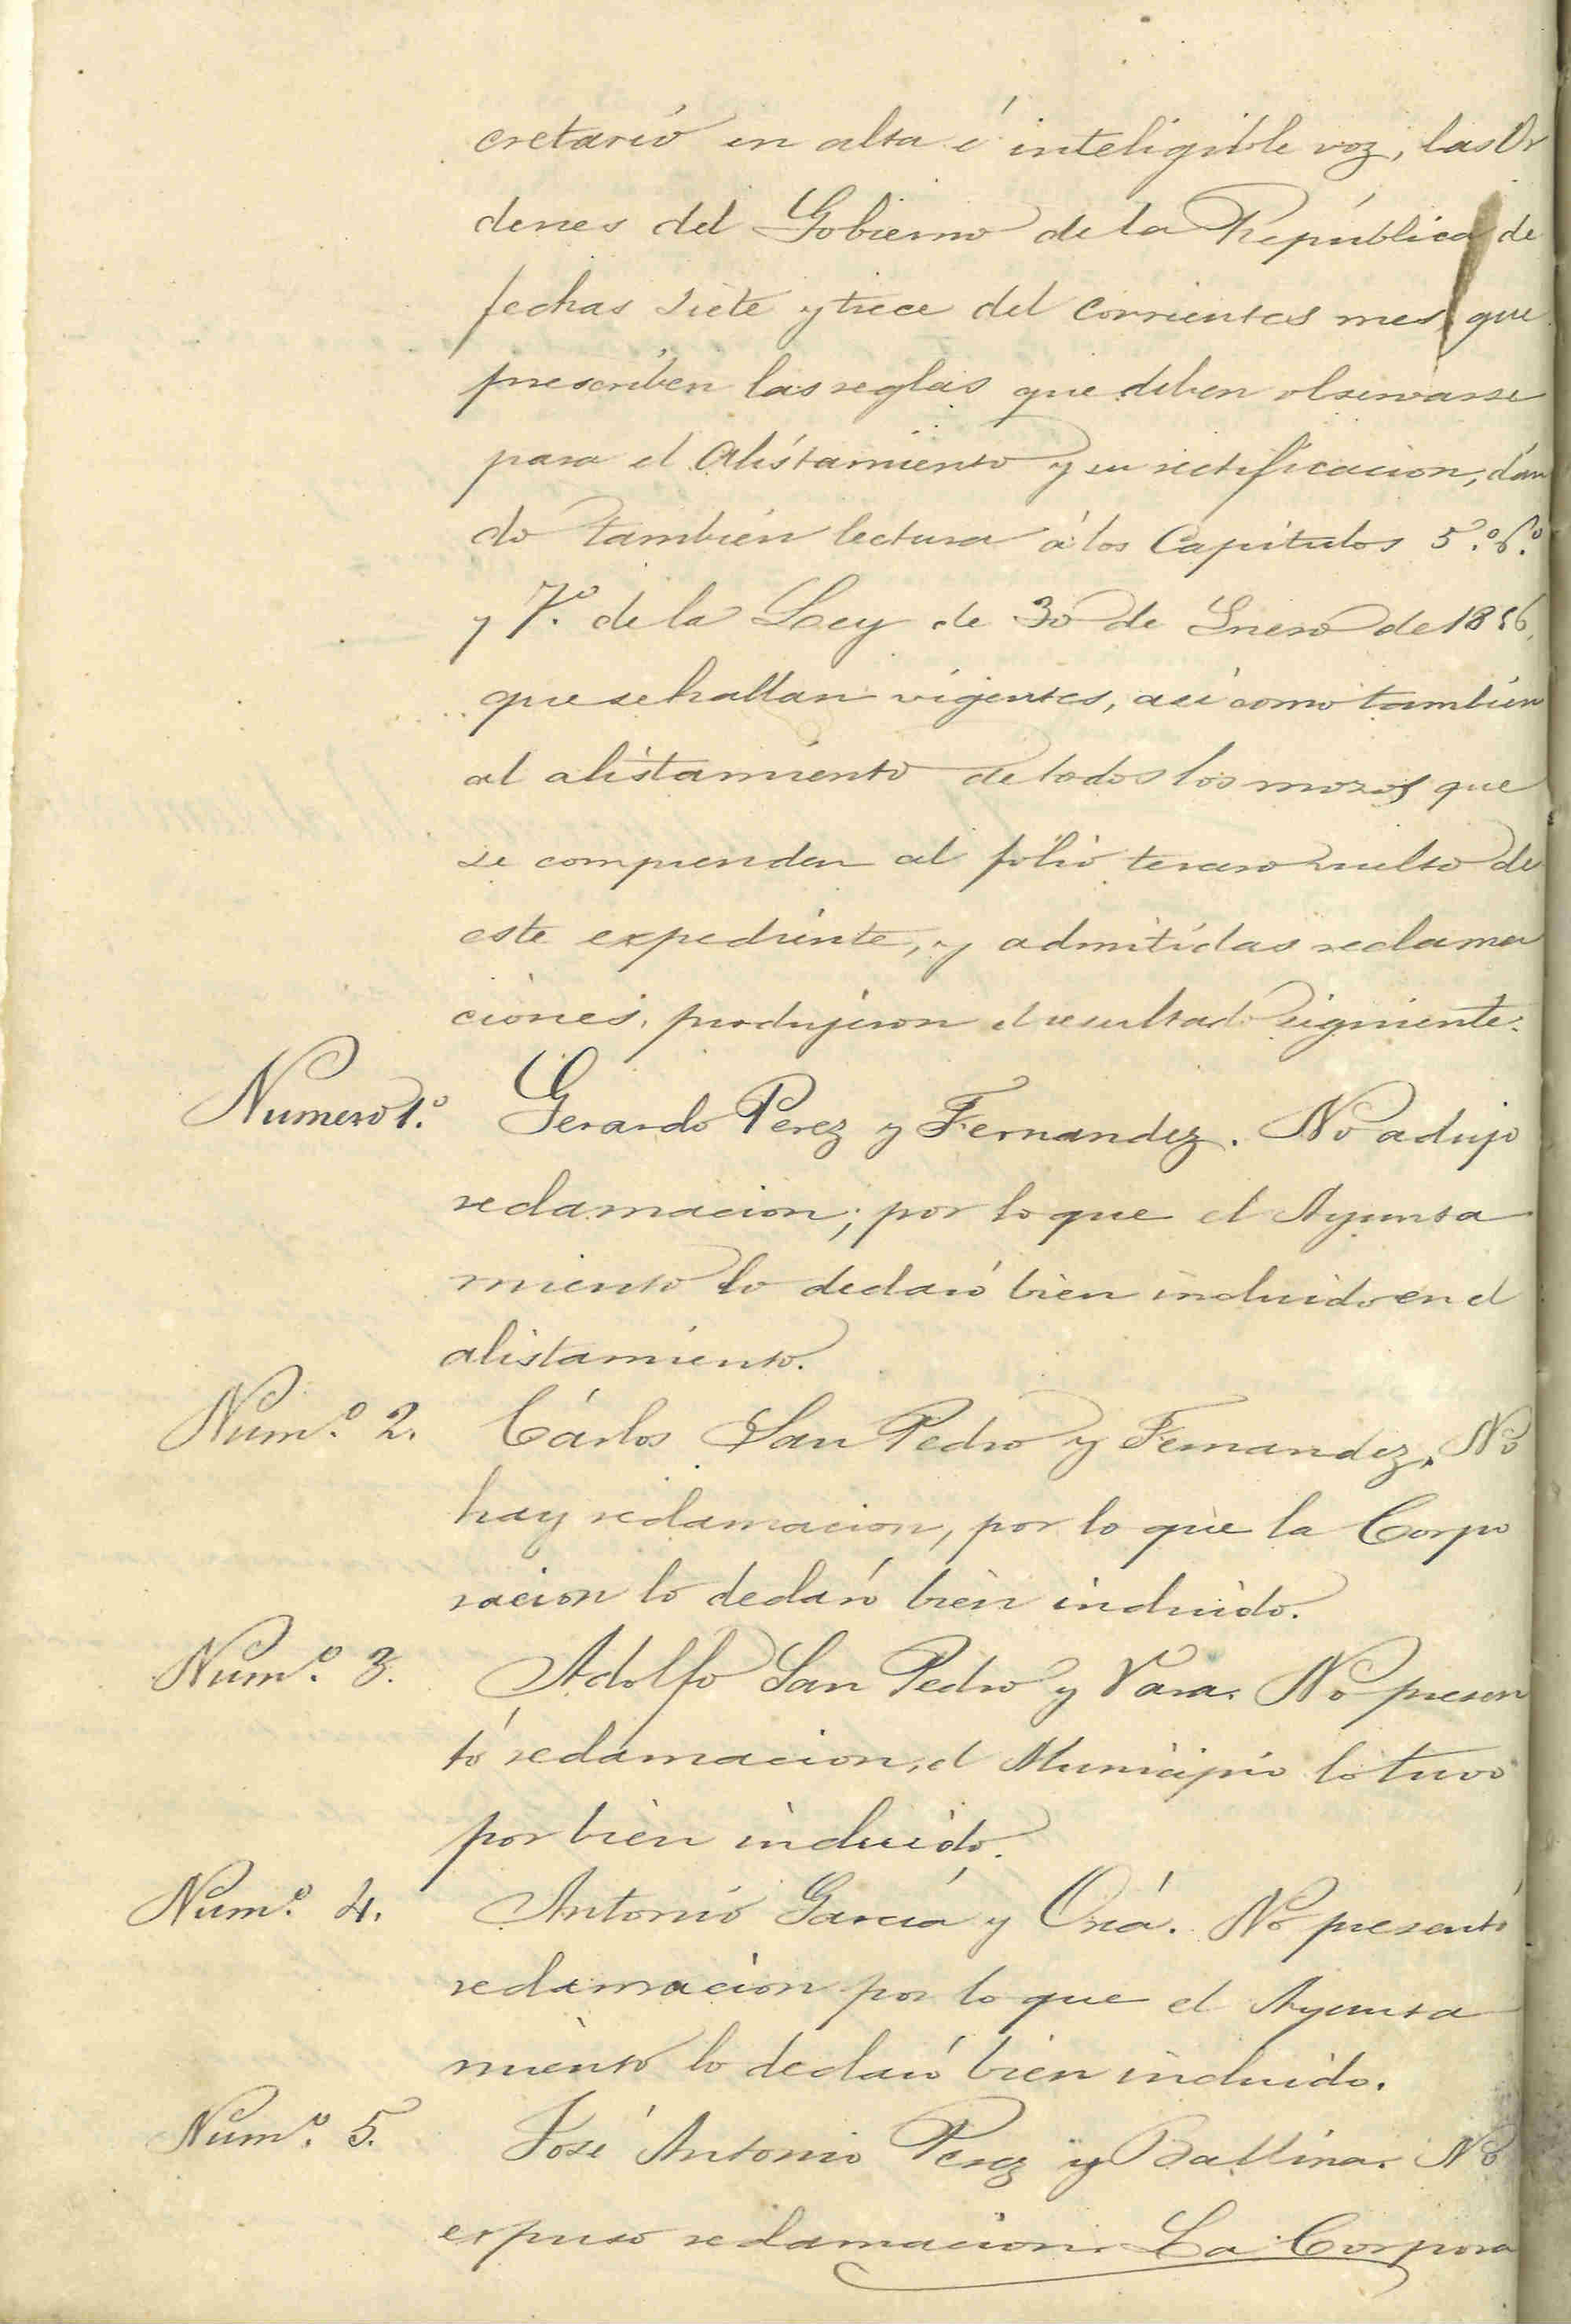 cretario en alta é inteligible voz, las Or
denes del Gobierno de la República de
fechas siete y trece del corrientes mes que
prescriben las reglas que deben observarse
para el Alistamiento y su rectificacion, dan
do tambien lectura á los Capitulos 5.º 6.º
y 7.º de la Ley de 30 de Enero de 1856,
que se hallan vigentes, asi como tambien
al alistamiento de todos los mozos que
se comprenden al folio tercero vuelto de
este expediente, y admitidas reclama
ciones, produjeron el resultado siguiente.
Numero 1.º Gerardo Perez y Fernandez. No adujo
reclamacion; por lo que el Ayunta
miento lo declaró bien incluido en el
alistamiento.
Num.º 2. Cárlos San Pedro y Fernandez. No
hay reclamacion, por lo que la Corpo
racion lo declaró bien incluido.
Num.º 3. Adolfo San Pedro y Vara. No presen
tó reclamacion, el Municipio lo tuvo
por bien incluido.
Num.º 4. Antonio García y Oriá. No presentó
reclamacion por lo que el Ayunta
miento lo declaró bien incluido.
Num.º 5. José Antonio Perez y Ballina. No
expuso reclamacion. La Corpora